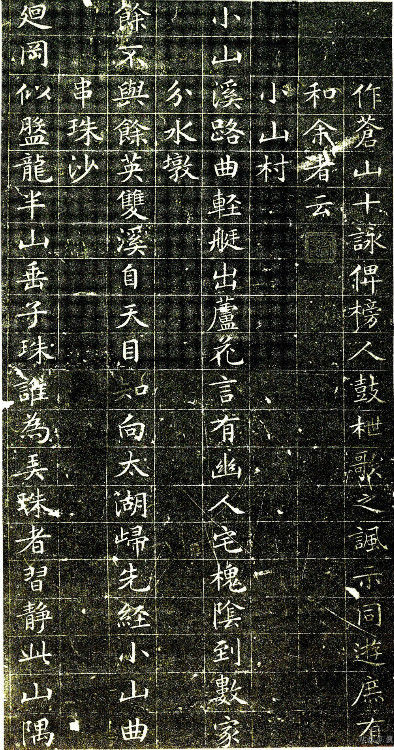 作蒼山十詠俾榜人鼓枻歌之諷示同遊庶有
和余者云
小山村
小山溪路曲軽艇出蘆花言有幽人宅槐陰到數家
分水墩
餘不與餘英雙溪自天目如向太湖歸先經小山曲
串珠沙
廻岡似盤龍半山垂子珠誰為弄珠者習靜此山隅